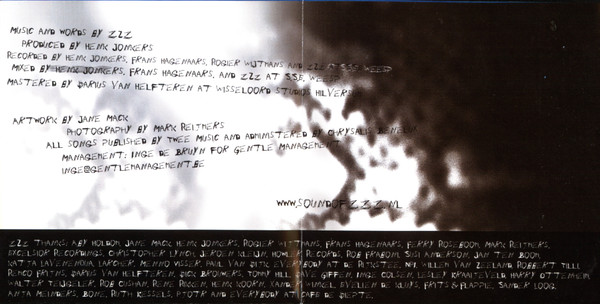 MUSIC AND WORDS BY ZZZ
PRODUCED BY HENK JONKERS
RECORDED BY HENK JONKERS, FRANS HAGENAARS, ROGIER WIJTMANS AND ZZZ AT SSE WEESP
MIXED BY HENK JONKERS, FRANS HAGENAARS, AND ZZZ AT S.S.E. WEESP
MASTERED BY DARIUS VAN HELFTEREN AT WISSELOORD STUDIOS HILVERSUM
ARTWORK BY JANE MACK
PHOTOGRAPHY BY MARK REITMERS
ALL SONGS PUBLISHED BY TWEE MUSIC AND ADMINISTERED BY CHRYSALIS BENELUX
MANAGEMENT: INGE DE BRUYN FOR GENTLE MANAGEMENT
INGE@GENTLEMANAGEMENT.BE
WWW.SOUNDOFZZZ.NL
ZZZ THANK(S): ABY HOLDOM, JANE MACK, HENK JONKERS, ROGIER WIJTMANS, FRANS HAGENAARS, FERRY ROSEBOOM, MARK REITMERS,
EXCELSIOR RECORDINGS, CHRISTOPHER LYNCH, JEROEN KLEIJN, HOWLER RECORDS, ROB FRABONI, SUSI ANDERSON, JAN TEN BOOM,
LARCHER, MENNO VISSER, PAUL VAN DIJK, EVERYBODY AT DE WILLEM VAN ZEELAND, ROBERT TILLI,
REMCO FRITHS, DARIUS VAN HELFTEREN, DICK BROUWERS, TONNY HILL, DAVE GIFFEN, INGE COLSEN, LESLEY HARRY OTTENHEIM,
WALTER TEIJGELER, ROB RENE ROGGEN, HENK KOORN, EVELIEN DE FRITS & FLAPPIE, SANDER LOOG,
ANTA MEINDERS, BONE, RUTH KESSELS, PJOTR AND EVERYBODY AT CAFE DE DIEPTE.